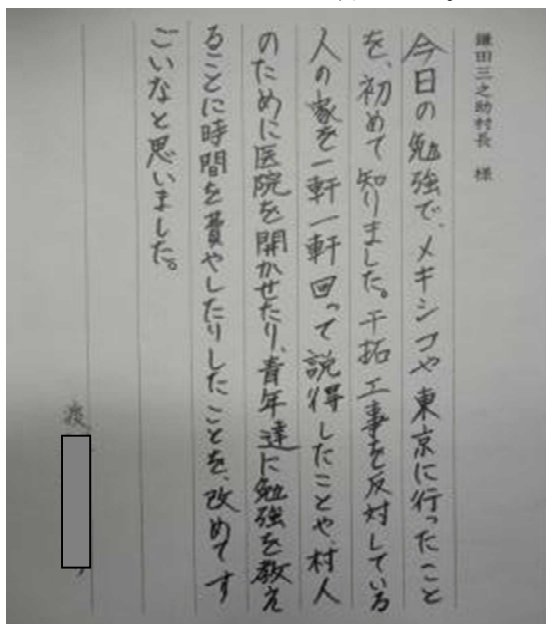 鎌田三之助村長　様
今日の勉強で、メキシコや東京に行ったこと
を、初めて知りました。干拓工事を反対している
人の家を一軒一軒回って説得したことや、村人
のために医院を開かせたり、青年達に勉強を教え
ることに時間を費やしたりしたことを、改めてす
ごいなと思いました。
渡